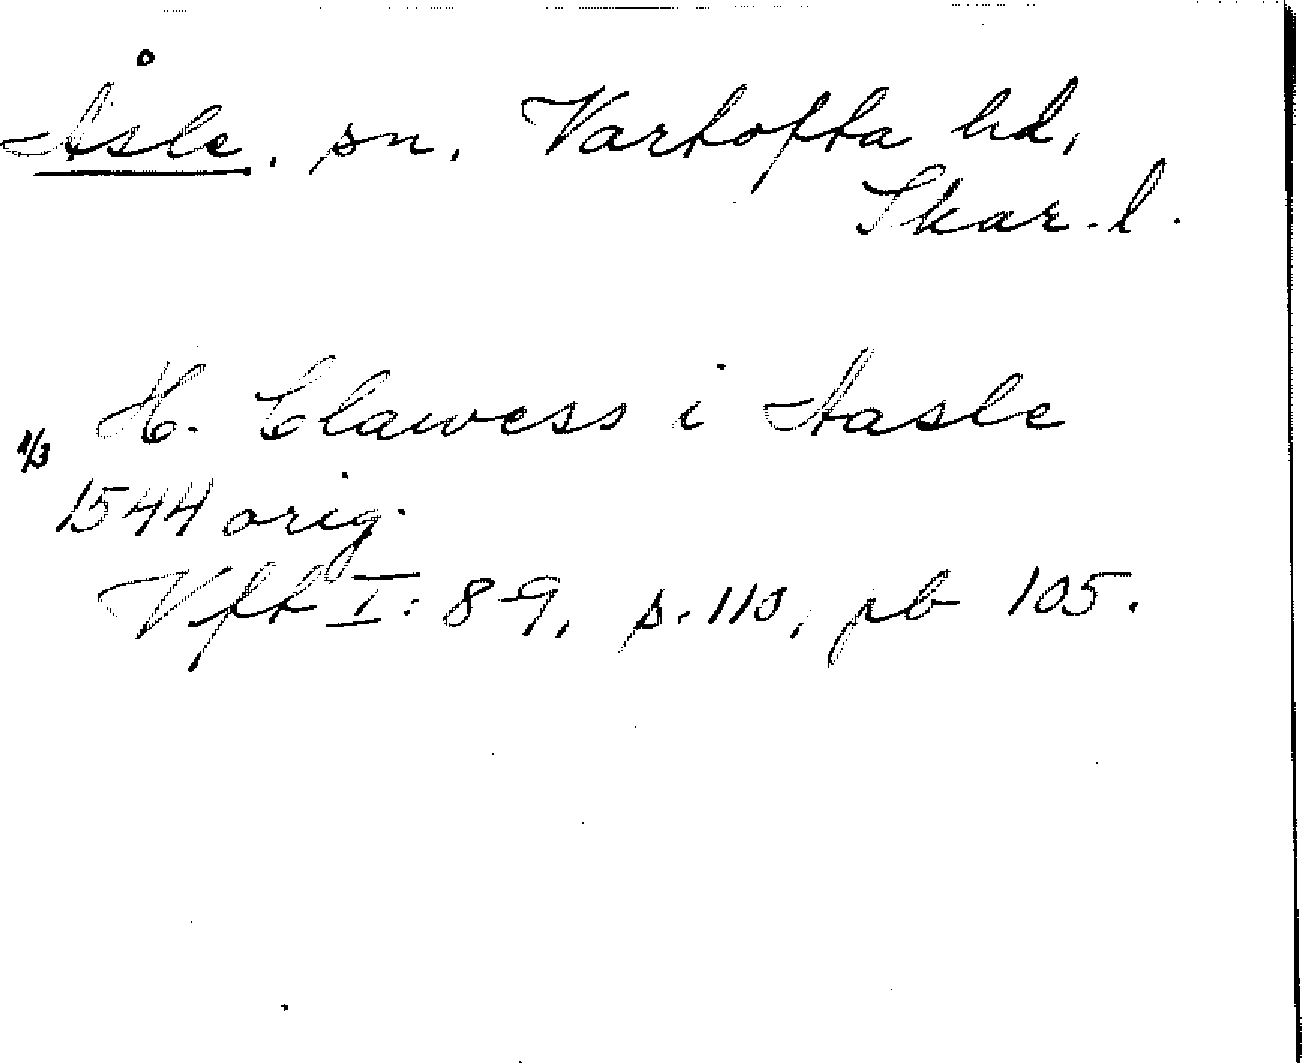 Åsle. sn. Vartofta hd,
Skar. l.
H. Clawess i Aasle
1/3
1544 orig.
Vft I: 8-9, s. 110, pb 105.